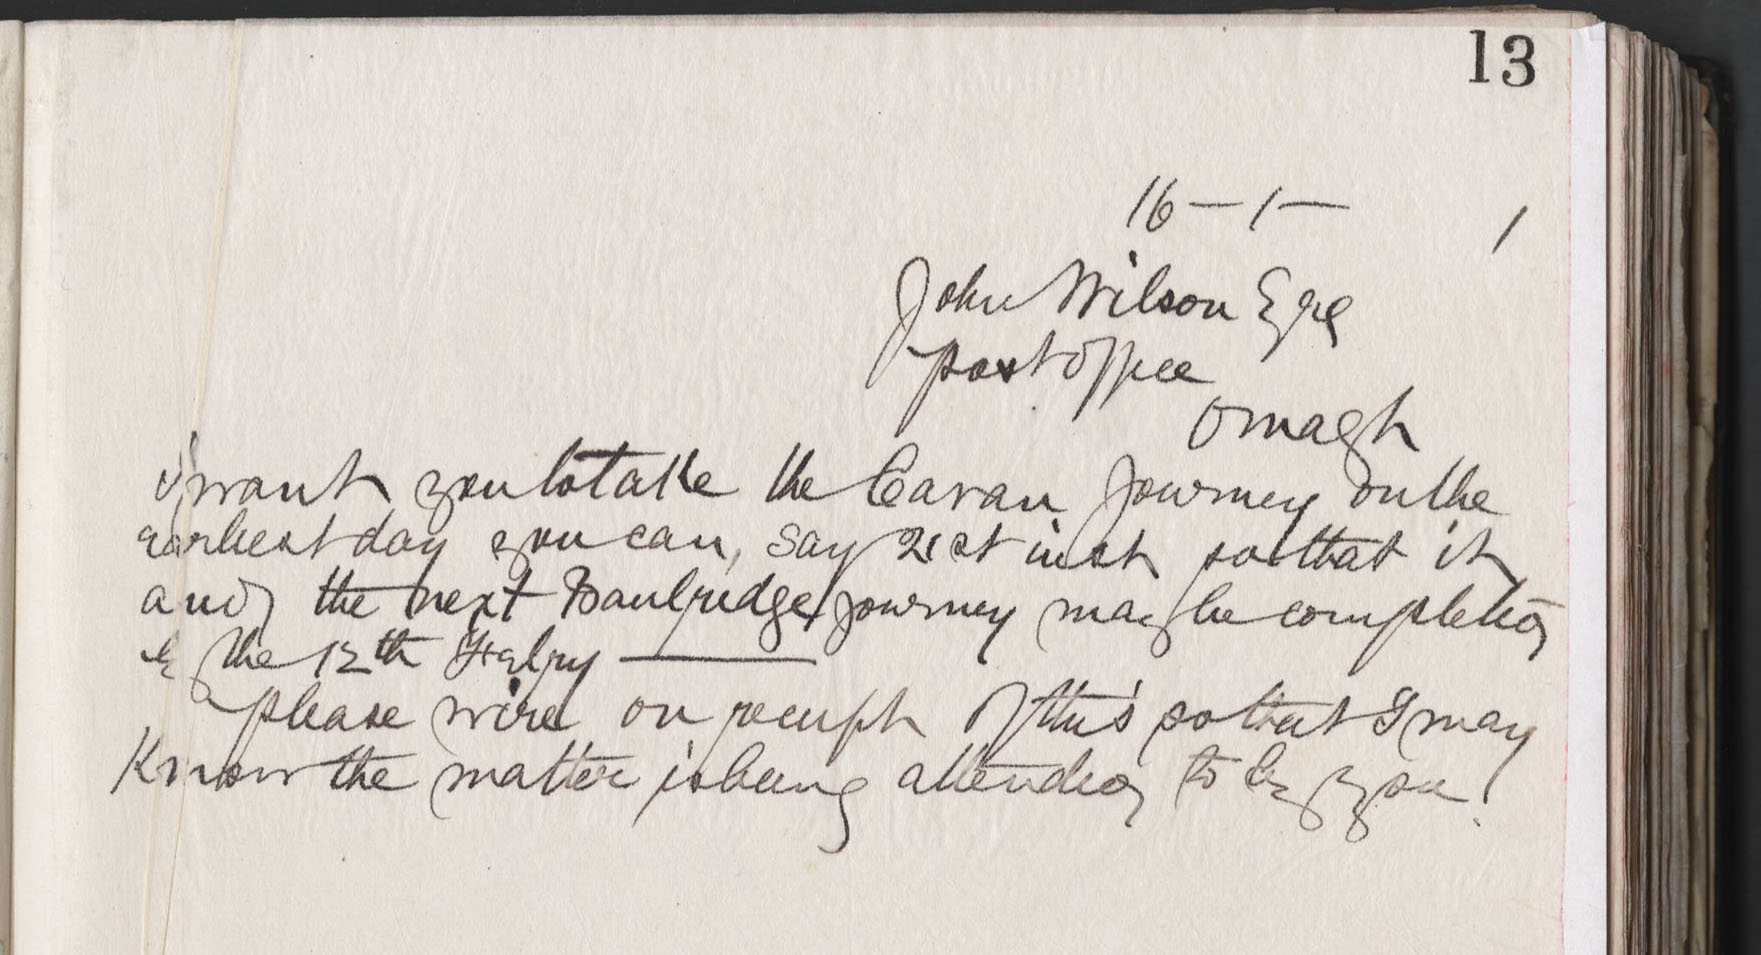 13
16 – 1 – 1
John Wilson Esqre
post office
Omagh
I want you to take the Cavan Journey on the
earliest day you can, say 21st inst so that it
and the next Banbridge journey may be completed
by the 12th Febry
please wire on receipt of this so that I may
Know the matter is being attended to by you.